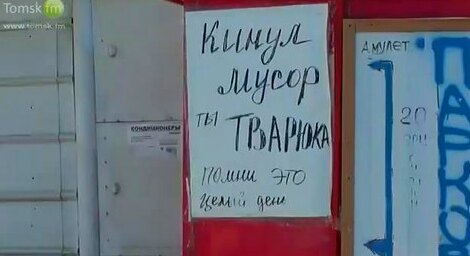 Tomsk fm
www.tomsk.fm
Кинул
мусор
ты ТВАРЮКА
помни это
целый день
КОНДИЦИОНЕРЫ
АМУЛЕТ
20